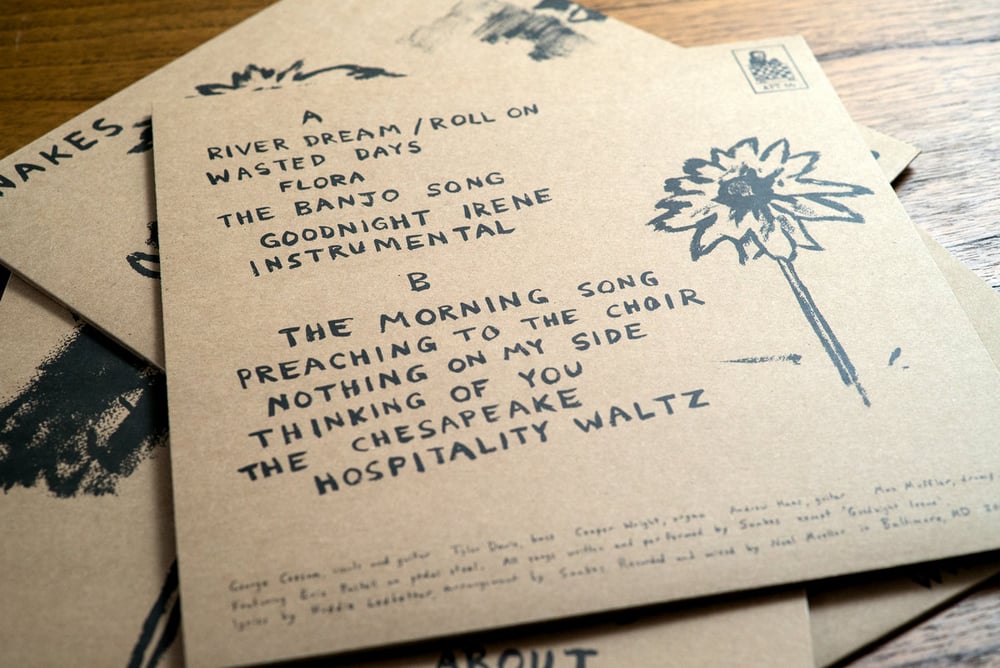 NAKES
APT
A
RIVER DREAM / ROLL ON
WASTED DAYS
FLORA
THE BANJO SONG
GOODNIGHT IRENE
INSTRUMENTAL
B
THE MORNING SONG
PREACHING TO THE CHOIR
NOTHING ON MY SIDE
THINKING OF YOU
THE CHESAPEAKE
HOSPITALITY WALTZ
George vocals and guitar Tyler Davis, bass Cooper Wright, organ Andrew guitar drums
Featuring Eric on pedal steel. All songs written and performed by Snakes except 'Goodnight Irene'
lyrics by Huddie Ledbetter, arrangement by Snakes Recorded and mixed by Noel Mueller in Baltimore, MD
ABOUT